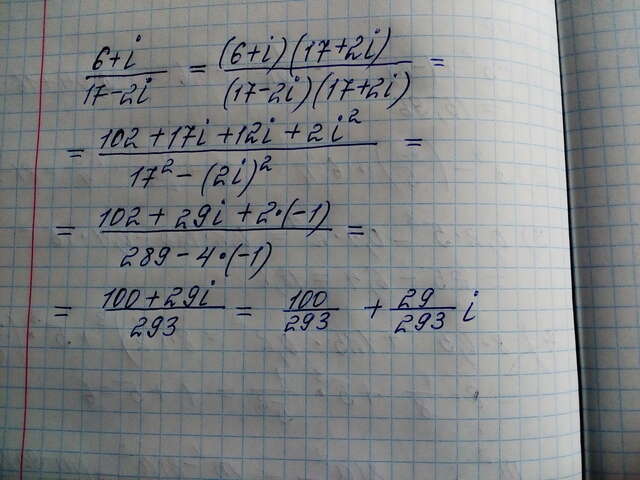 (6+i)/(17-2i) = ((6+i)(17+2i))/((17-2i)(17+2i)) =
= (102+17i+12i+2i²)/(17²-(2i)²) =
= (102+29i+2·(-1))/(289-4·(-1)) =
= (100+29i)/293 = 100/293 + 29/293 i